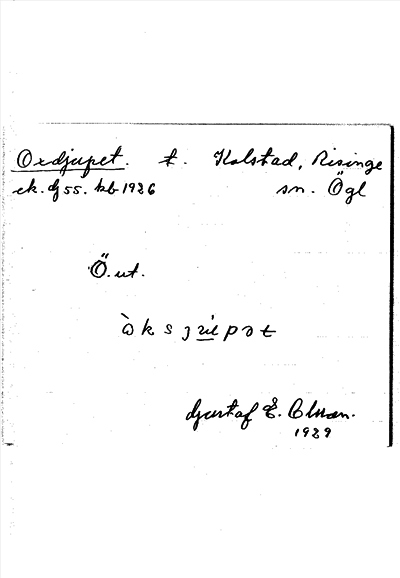 Oxdjupet. t. Kolstad, Risinge
ek. bl 55. kb 1926 sn. Ögl
Ö. ut.
òksȷu̲pət
Gustaf E. Olson.
1929